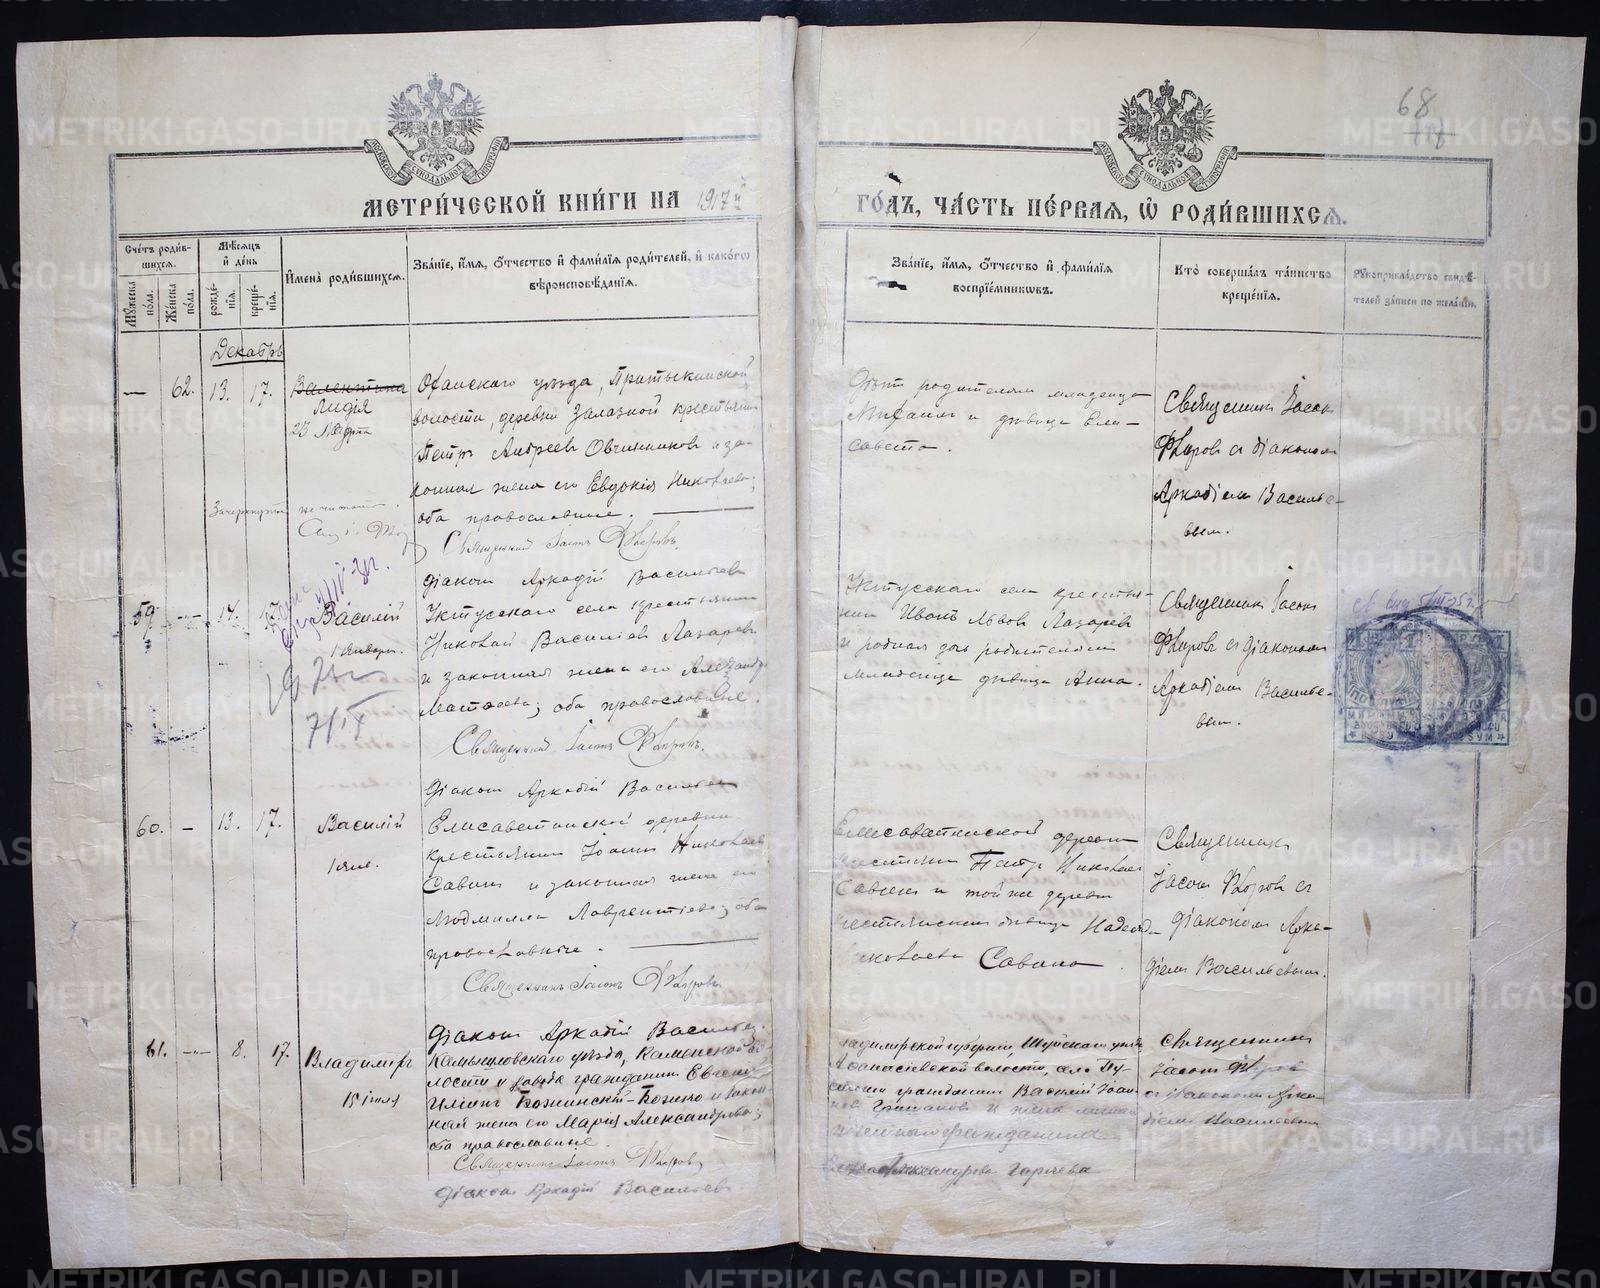 68
118
МЕТРИ́ЧЕСКОЙ КНИ́ГИ НА 1917й
ГО́ДЪ, ЧА́СТЬ ПЕ́РВАЯ, Ѡ҆ РОДИ́ВШИХСѦ.
Сче́тъ роди́в-
шихся.
Мꙋ́жеска по́ла.
Же́нска по́ла.
Мѣ́сяцъ и҆ де́нь
рожде́-нїя.
креще́-нїя.
И҆мена̀ роди́вшихся.
Зва́нїе, и҆́мя, ѻ҆́тчество и҆ фами́лїя роди́телей, и҆ како́гѡ
вѣроисповѣ́данїя.
Зва́нїе, и҆́мя, ѻ҆́тчество и҆ фами́лїя
воспрїе́мникѡвъ.
Кто̀ соверша́лъ та́инство
креще́нїя.
Рꙋкоприкла́дство свидѣ́-
телей за́писи по жела́нїю.
Декабрь
— 62. 13. 17.
Валентина
Лидія
23 Марта
Оханскаго уѣзда,
волости, деревни Залазной крестьянин
Петръ Андреев Овчинников и за-
конная жена его Евдокія Николаева,
оба православные.
Зачеркнутое не читать.
Священник Іасонъ Флоровъ.
діакон Аркадій Васильев
Были родителям младенца
Михаил и дѣвица Ели-
савета.
Священник Іасон
Флоров с діаконом
Аркадіем Василье-
вым.
59. -"- 14. 17.
Василій
1 января.
7/IX
Уктусскаго села крестьянин
Николай Василіев Лазарев
и законная жена его Александра
Матѳеева; оба православные.
Священник Іасонъ Флоровъ.
діакон Аркадій Васильев
Уктусскаго села крестья-
нин Иванъ Львов Лазарев
и родная дочь родителей
младенца дѣвица Анна.
Священник Іасон
Флоров с діаконом
Аркадіем Василье-
вым.
60. — 13. 17.
Василій
1 янв.
Елисаветинской деревни
крестьянин Іоанн Николаев
Савин и законная жена его
Людмилла Лаврентіева; оба
православные.
Священникъ Іасонъ Флоровъ.
діакон Аркадій Васильев.
Елисаветинской деревни
крестьянин Петр Николаев
Савин и той же деревни
крестьянская дѣвица Надежда
Николаева Савина.
Священник
Іасон Флоров с
діаконом Арка-
діем Васильевым.
61. -"- 8. 17.
Владимиръ
15 іюля
Камышловскаго уѣзда, Каменской во-
лости и завода гражданин Евгеній
Иліин Божинскій-Божко и закон-
ная жена его Марія Александрова;
оба православные.
Священникъ Іасонъ Флоровъ
діакон Аркадій Васильев.
Владимірской губерніи, Шуйскаго уѣзда
Аѳанасіевской волости, села
гражданин Василій Іоан-
нов Гришанов и
гражданина
Александрова Горяева
Священник
Іасон Флоров
с діаконом Арка-
діем Васильевым